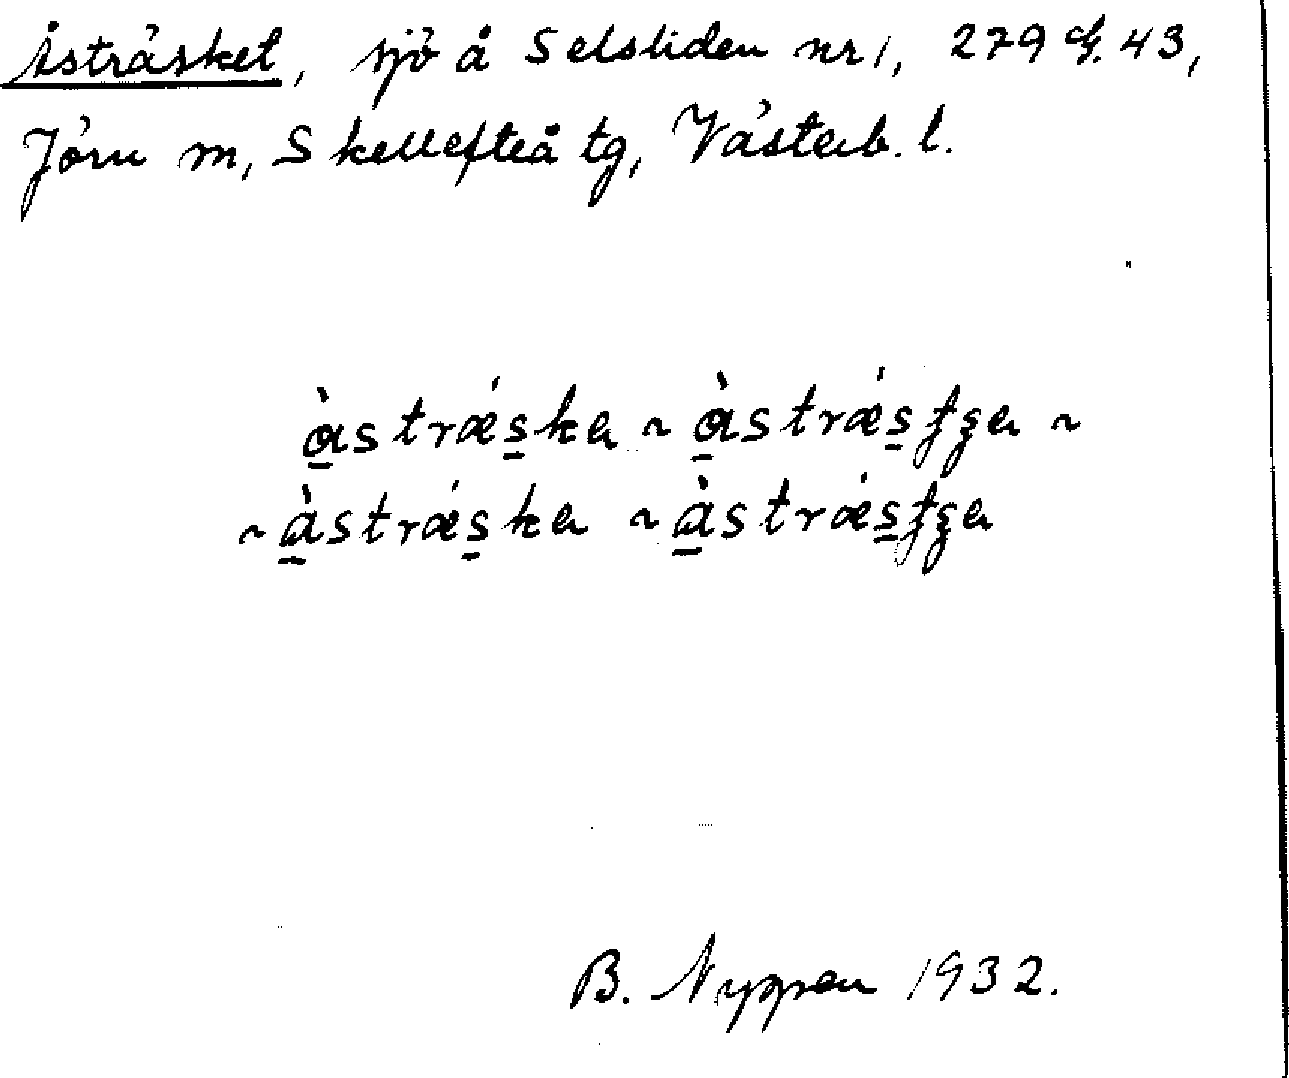 Åsträsket, sjö å Selsliden nr 1, 279 cf. 43,
Jörn sn, Skellefteå tg, Västerb. l.
à̱strä́s̱ka ~ à̱strä́s̱ʃʒa ~
~ à̱strä́s̱ka ~ à̱strä́s̱ʃʒa
B. Nyman 1932.